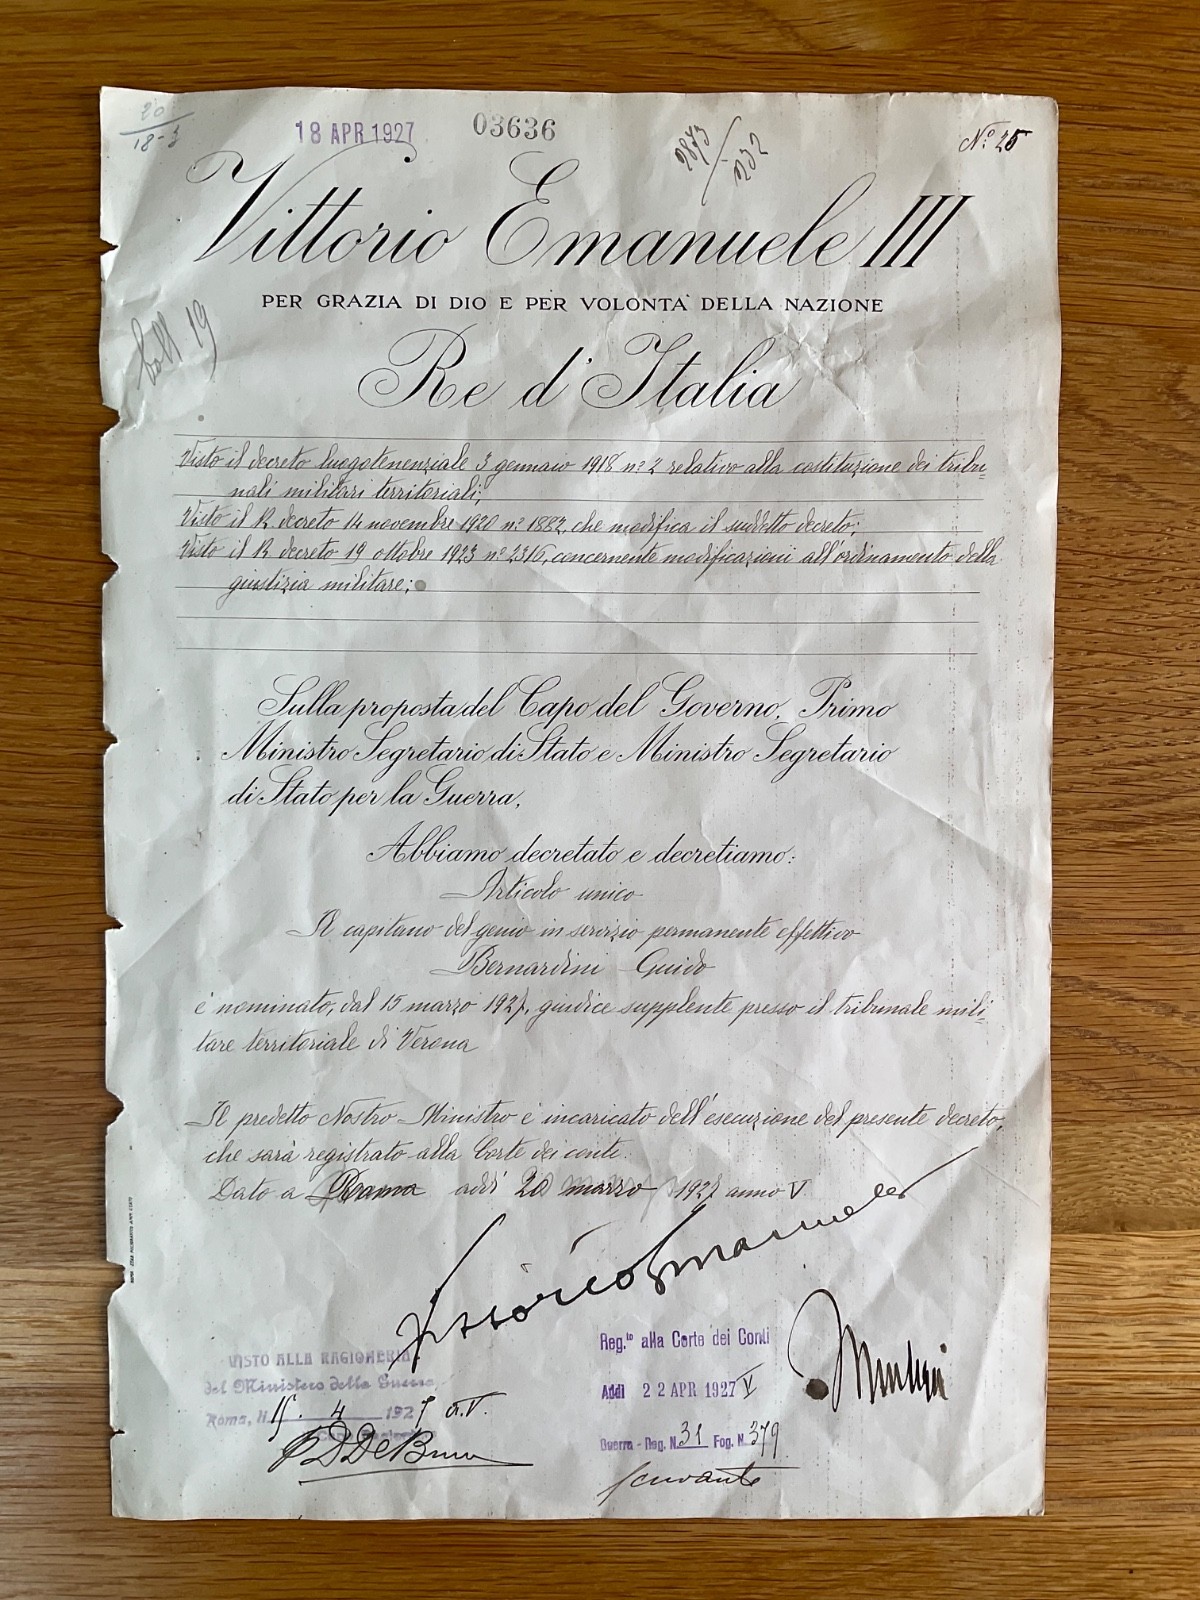 20
18-3
18 APR 1927
03636
2873/232
N.º 25
Vittorio Emanuele III
PER GRAZIA DI DIO E PER VOLONTA' DELLA NAZIONE
19
Re d'Italia
Visto il decreto luogotenenziale 3 gennaio 1918 nº 2 relativo alla costituzione dei tribu-
nali militari territoriali;
Visto il R. decreto 14 novembre 1920 nº 1882, che modifica il suddetto decreto;
Visto il R. decreto 19 ottobre 1923 nº 2316, concernente modificazioni all'ordinamento della
giustizia militare;
Sulla proposta del Capo del Governo, Primo
Ministro Segretario di Stato e Ministro Segretario
di Stato per la Guerra,
Abbiamo decretato e decretiamo:
Articolo unico
Il capitano del genio in servizio permanente effettivo
Bernardini Guido
è nominato, dal 15 marzo 1927, giudice supplente presso il tribunale mili-
tare territoriale di Verona
Il predetto Nostro Ministro è incaricato dell'esecuzione del presente decreto,
che sarà registrato alla Corte dei conti.
Dato a Roma addì 20 marzo 1927 anno V
Vittorio Emanuele
Mussolini
VISTO ALLA RAGIONERIA
del Ministero della Guerra
Roma, li 15. 4 1927 a.V.
Reg.to alla Corte dei Conti
Addì 22 APR 1927 V
Guerra - Reg. N. 31 Fog. N. 379